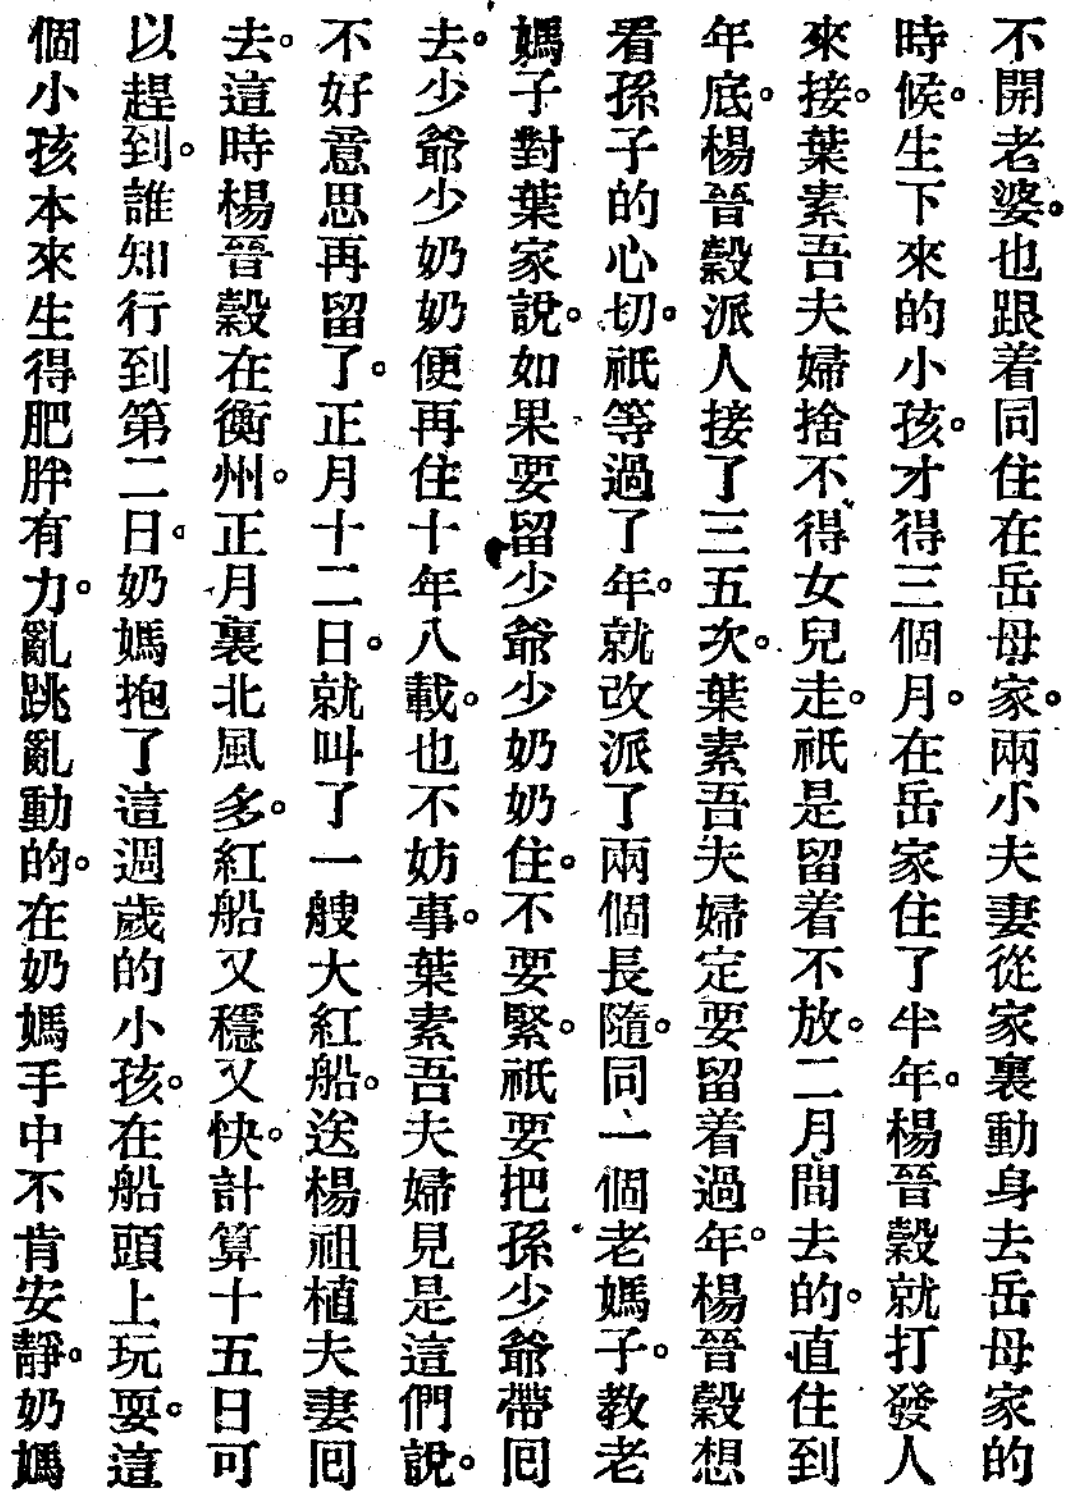 不開老婆。也跟着同住在岳母家。兩小夫妻從家裏動身去岳母家的
時候。生下來的小孩。才得三個月。在岳家住了半年。楊晉穀就打發人
來接。葉素吾夫婦捨不得女兒走。祇是留着不放。二月間去的。直住到
年底。楊晉穀派人接了三五次。葉素吾夫婦定要留着過年。楊晉穀想
看孫子的心切。祇等過了年。就改派了兩個長隨。同一個老媽子。教老
媽子對葉家說。如果要留少爺少奶奶住。不要緊。祇要把孫少爺帶囘
去。少爺少奶奶便再住十年八載。也不妨事。葉素吾夫婦見是這們說。
不好意思再留了。正月十二日。就叫了一艘大紅船。送楊祖植夫妻囘
去。這時楊晉穀在衡州。正月裏北風多。紅船又穩又快。計算十五日可
以趕到。誰知行到第二日。奶媽抱了這週歲的小孩。在船頭上玩耍。這
個小孩本來生得肥胖有力。亂跳亂動的。在奶媽手中不肯安靜。奶媽